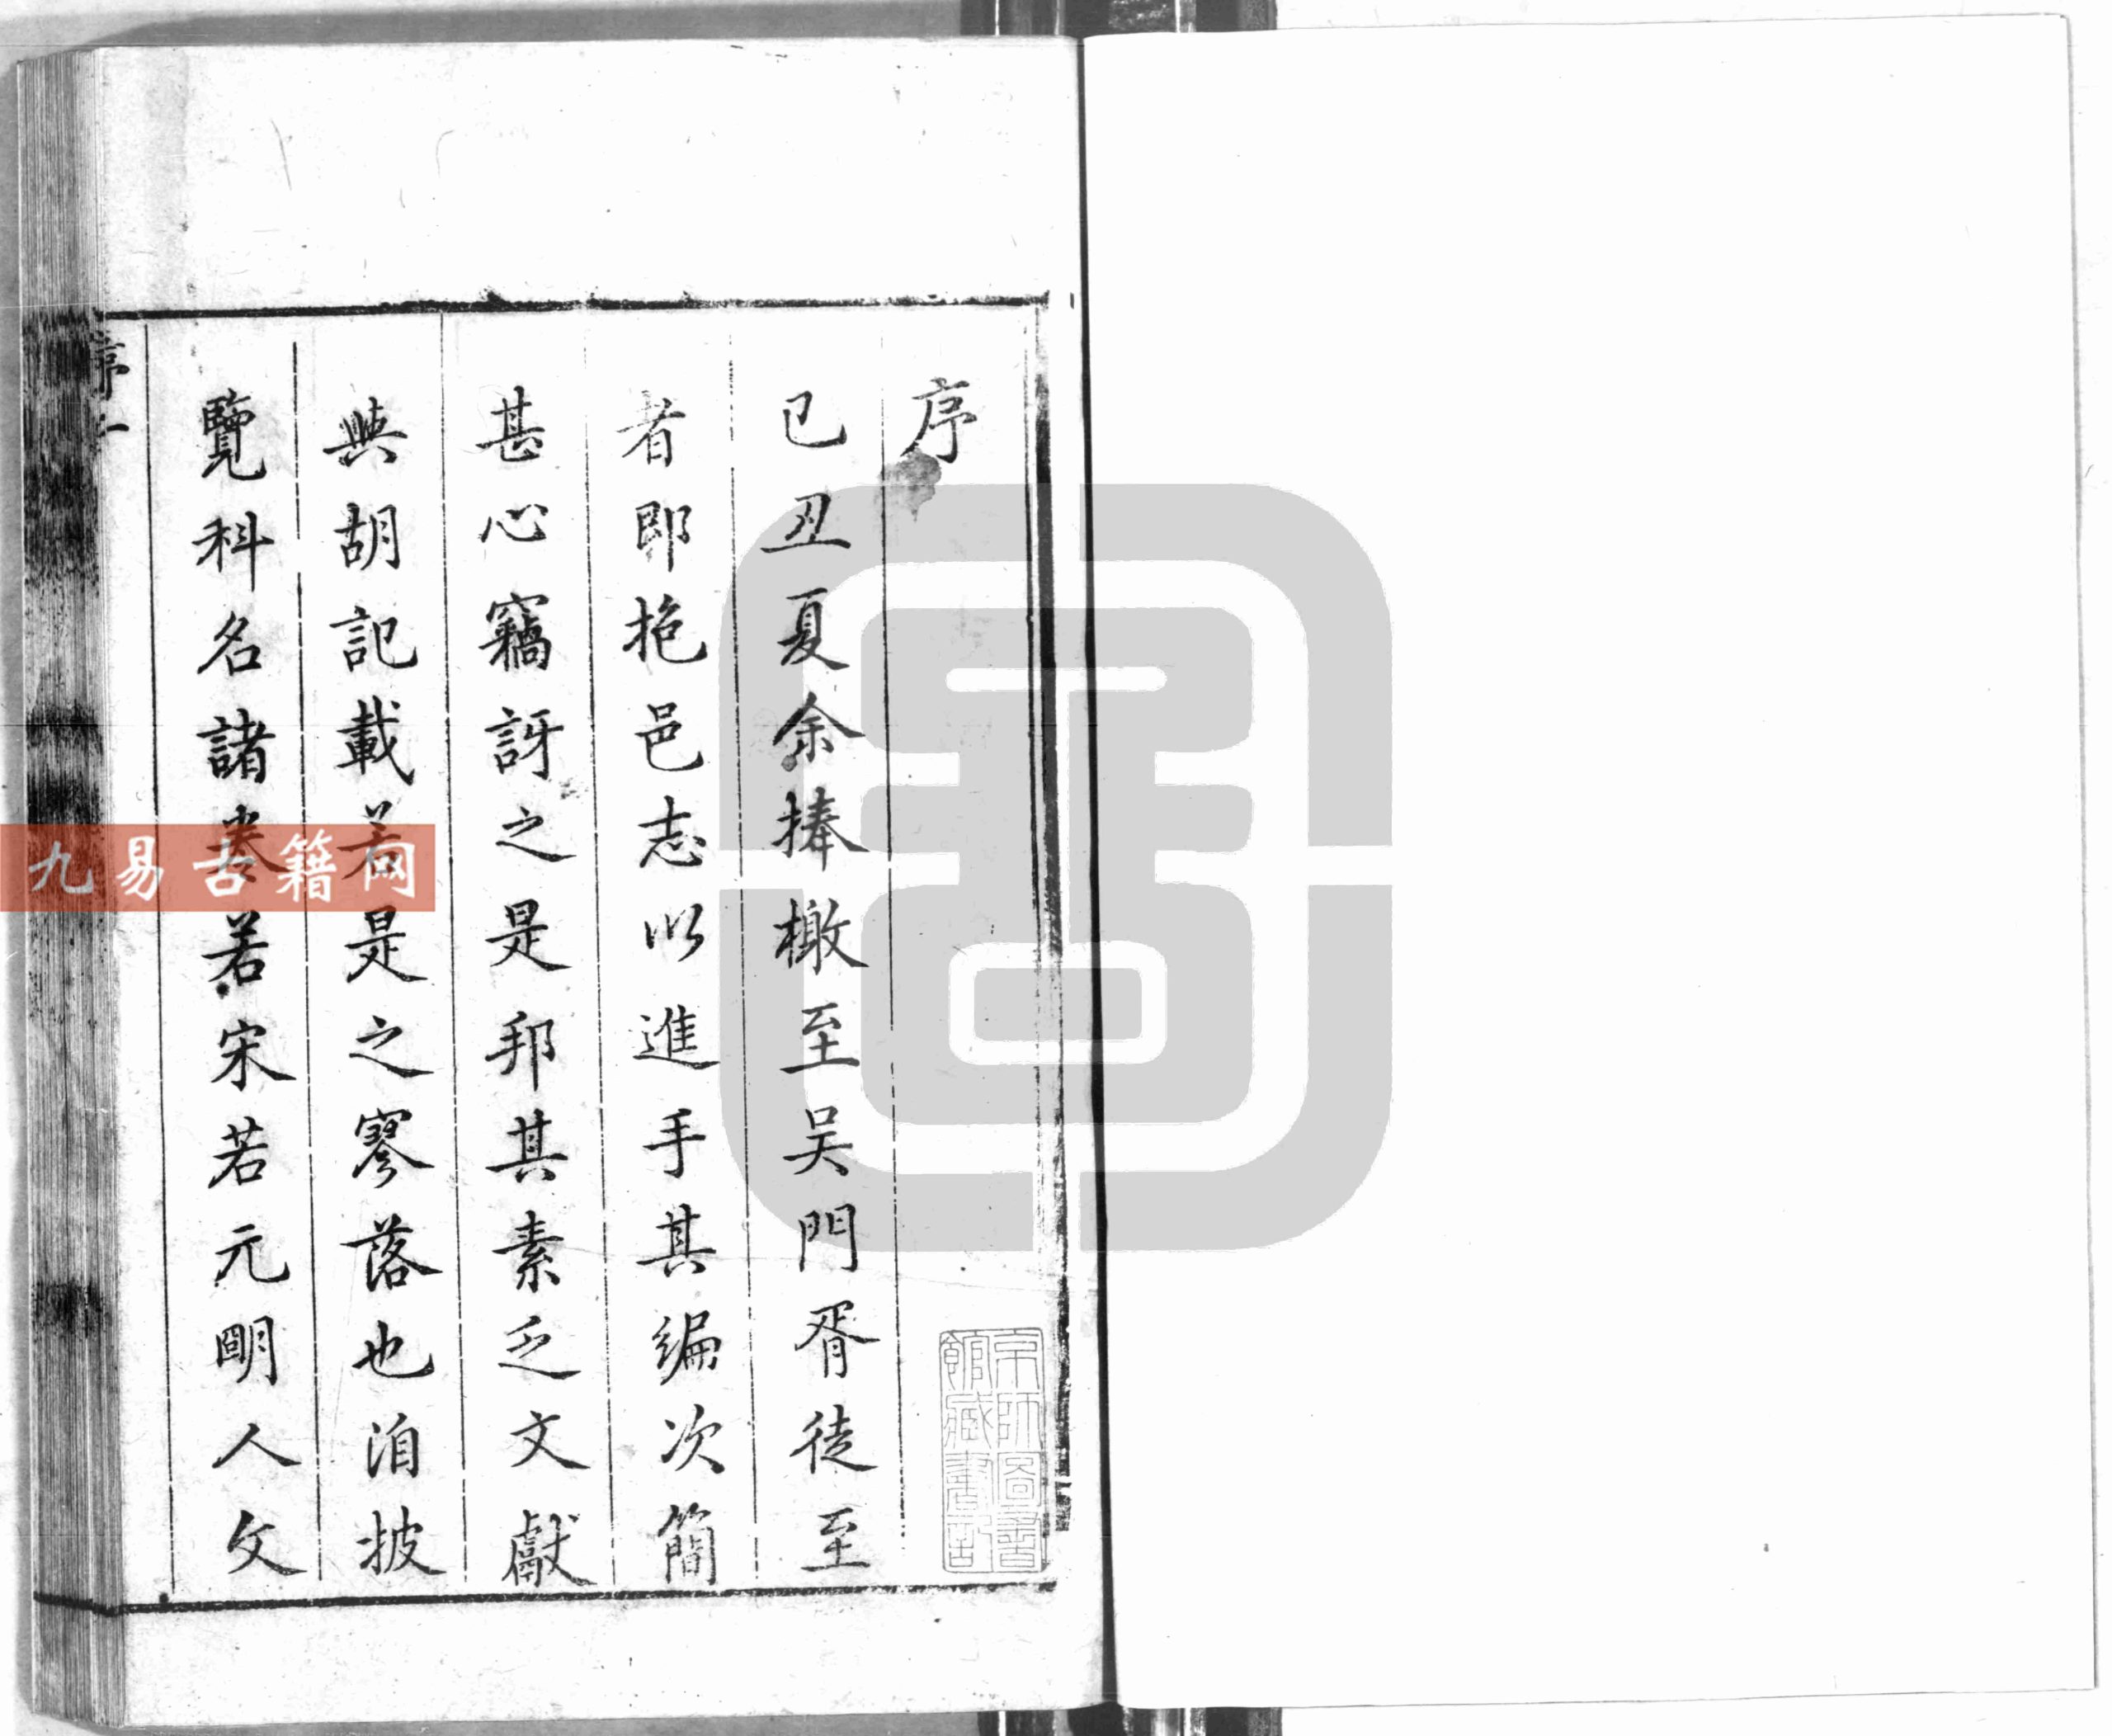 序
己丑夏余捧檄至吴門胥徒至
者即抱邑志以進手其編次簡
甚心竊訝之是邦其素乏文獻
與胡記載若是之寥落也洎披
覽科名諸卷若宋若元明人文
序
京師圖書
館藏書記
九易古籍网